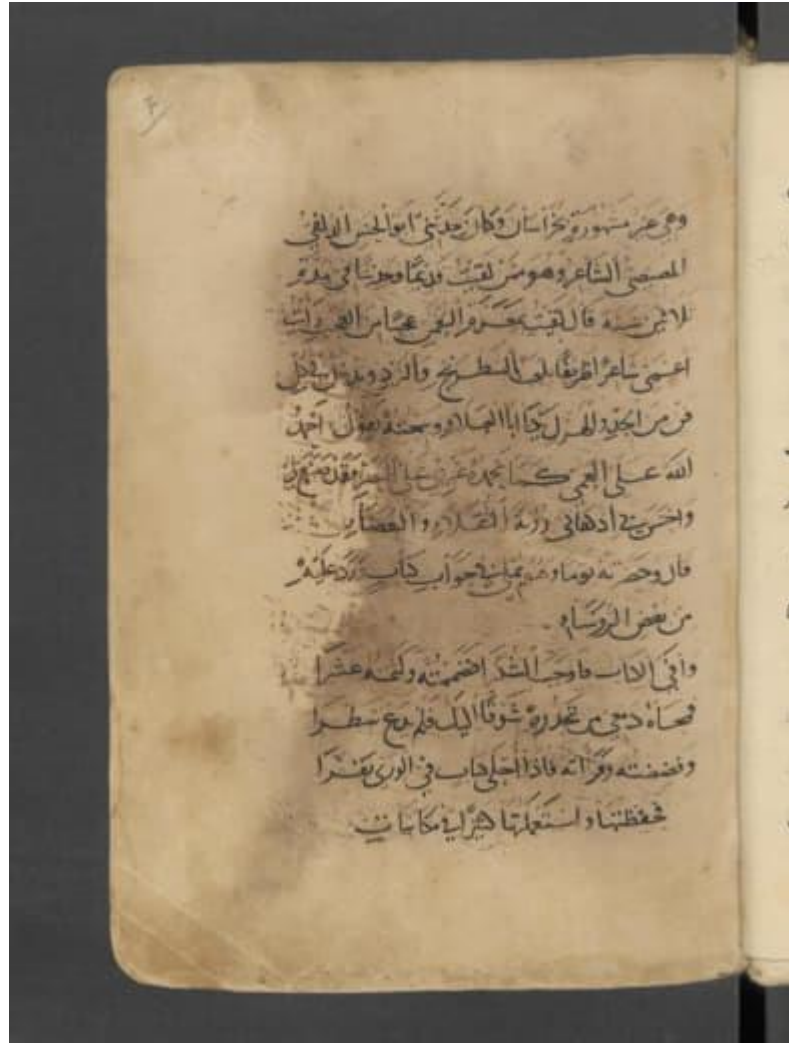 وهي عنه مشهورة بخراسان وكان حدثني ابو الحسن الدلفي
المصيصي الشاعر وهو ممن لقيته قديما وحديثا في مدة
ثلاثين سنة قال لقيت بمعرة النعمن عجبا من العجب رأيت
اعمى شاعرا ظريفا يلعب بالشطرنج والنرد ويدخل في كل
فن من الجد والهزل يكنى ابا العلاء وسمعته يقول احمد
الله على العمى كما يحمده غيري على البصر فقد صنع لي
واحسن بي اذ كفاني رؤية الثقلاء والبغضاء
قال وحضرته يوما وهو يملي في جواب كتاب ورد عليه
من بعض الرؤساء
وافى الكتاب فاوجب الشكرا فضممته ولثمته عشرا
فمحاه دمعي من تحدره شوقا اليك فلم يدع سطرا
وفضضته وقرأته فاذا اجلى كتاب في الورى يقرا
فحفظتها واستعملتها كثيرا في مكاتبات